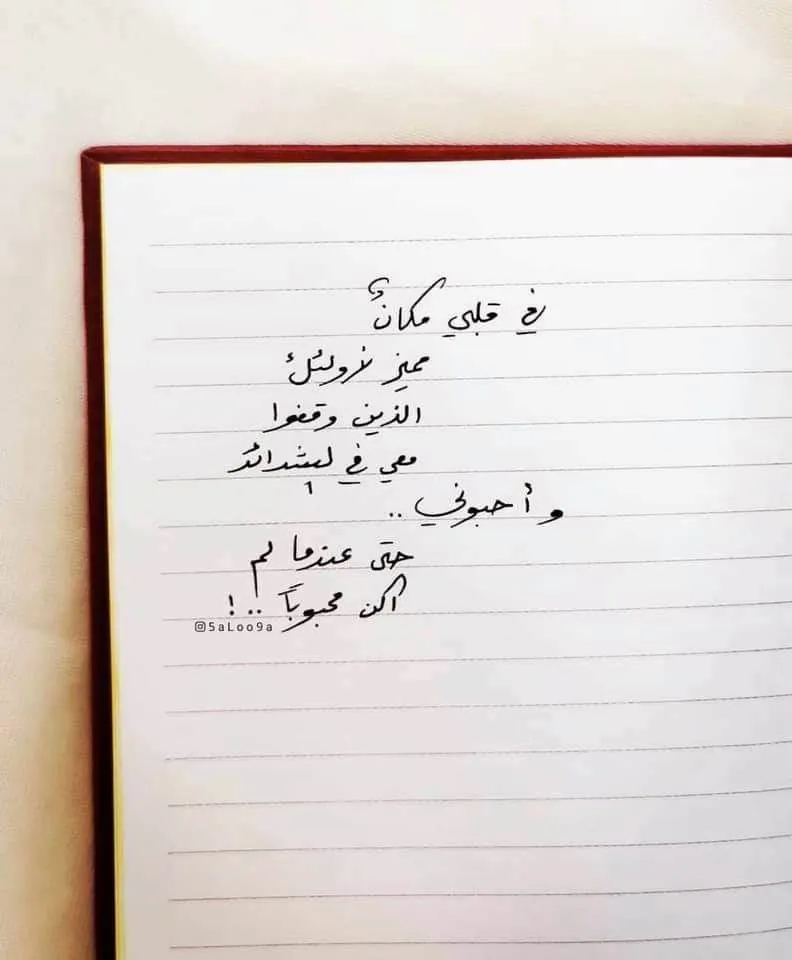 في قلبي مكانٌ
مميز لأولئك
الذين وقفوا
معي في الشدائد
و أحبوني ..
حتى عندما لم
اكن محبوباً .. !
5aLoo9a